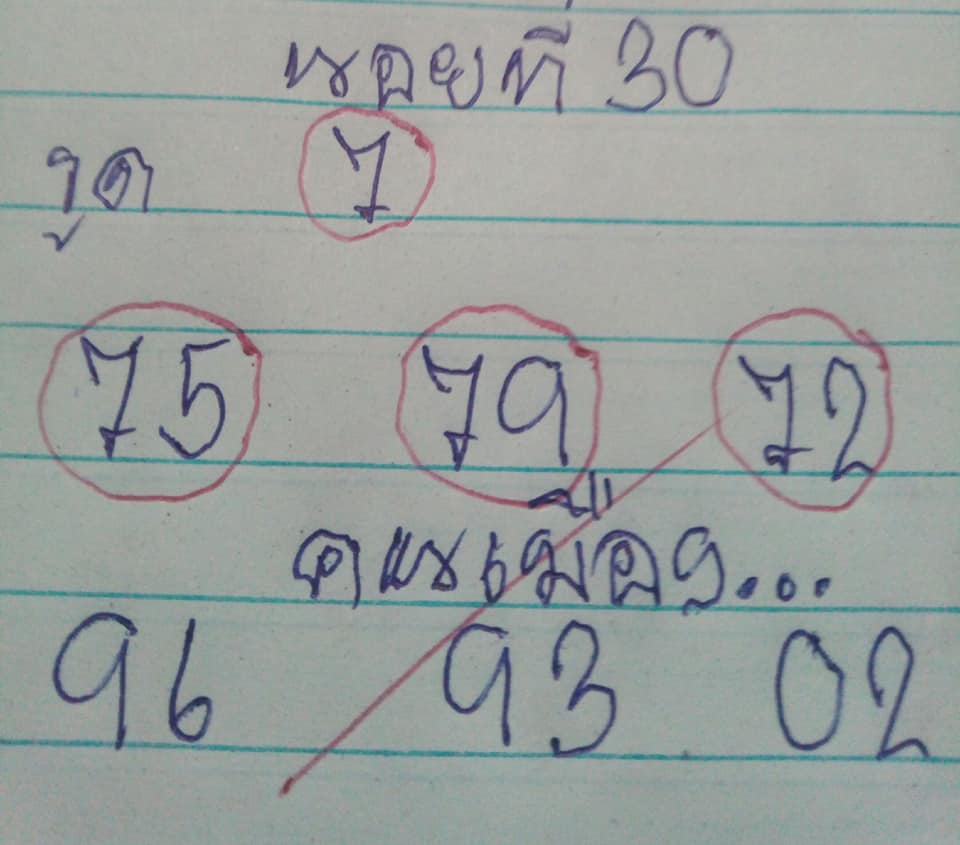 หรอยที่ 30
รูด 7
75 79 72
คนเมือง...
96 93 02